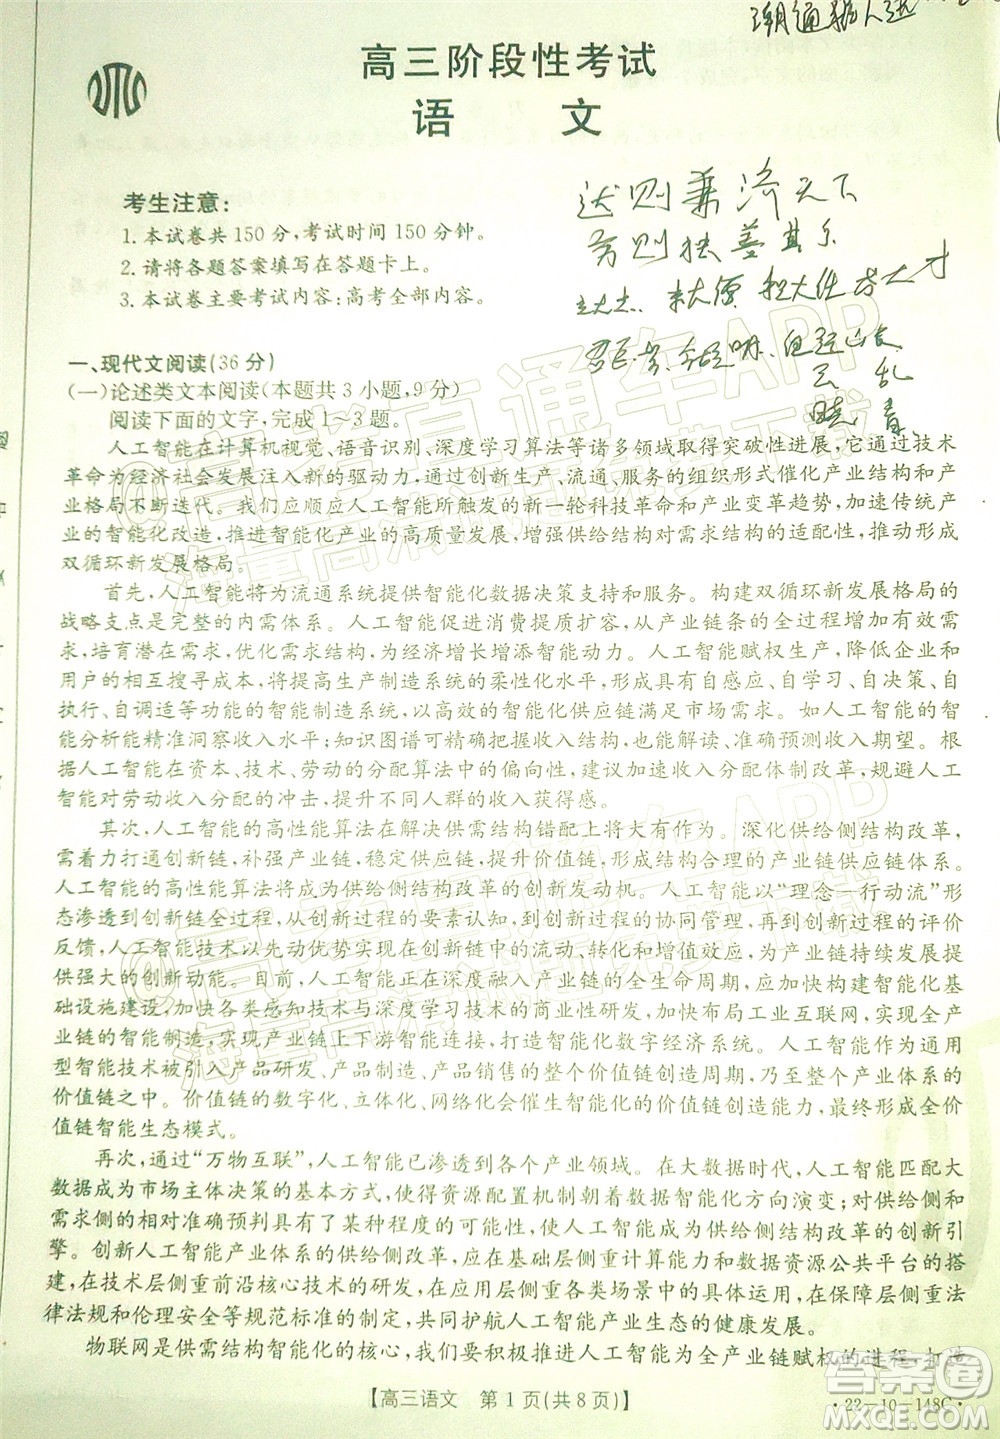 高三阶段性考试
语 文
达则兼济天下
则独善其
考生注意:
1.本试卷共150分,考试时间150分钟。
2.请将各题答案填写在答题卡上。
3.本试卷主要考试内容:高考全部内容。
一、现代文阅读(36分)
(一)论述类文本阅读(本题共3小题,9分)
阅读下面的文字,完成1~3题。
人工智能在计算机视觉、语音识别、深度学习算法等诸多领域取得突破性进展,它通过技术
革命为经济社会发展注入新的驱动力,通过创新生产、流通、服务的组织形式催化产业结构和产
业格局不断迭代。我们应顺应人工智能所触发的新一轮科技革命和产业变革趋势,加速传统产
业的智能化改造,推进智能化产业的高质量发展,增强供给结构对需求结构的适配性,推动形成
双循环新发展格局。
首先,人工智能将为流通系统提供智能化数据决策支持和服务。构建双循环新发展格局的
战略支点是完整的内需体系。人工智能促进消费提质扩容,从产业链条的全过程增加有效需
求,培育潜在需求,优化需求结构,为经济增长增添智能动力。人工智能赋权生产,降低企业和
用户的相互搜寻成本,提高生产制造系统的柔性化水平,形成具有自感应、自学习、自决策、自
执行、自调适等功能的智能制造系统,以高效的智能化供应链满足市场需求。如人工智能的智
能分析能精准洞察收入水平;知识图谱可掌握收入结构,也能解读、准确预测收入期望。根
据人工智能在资本、技术、劳动的分配算法中的偏向性,建议加速收入分配体制改革,规避人工
智能对劳动收入分配的冲击,提升不同人群的收入获得感。
其次,人工智能的高性能算法在解决供需结构错配上将大有作为。深化供给侧结构改革,
需着力打通创新链,补强产业链,稳定供应链,提升价值链,形成结构合理的产业链供应链体系。
人工智能的高性能算法将成为供给侧结构改革的创新发动机。人工智能以“理念—行动流”形
态渗透到创新链全过程,从创新过程的要素认知,到创新过程的协同管理,再到创新过程的评价
反馈,人工智能技术以先动优势实现在创新链中的流动、转化和增值效应,为产业链持续发展提
供强大的创新动能。目前,人工智能正在深度融入产业链的各个环节,应加快构建智能化基
础设施建设,加快各类感知技术与深度学习技术的商业性应用,加快布局工业互联网,实现全产
业链的智能制造,实现产业链上下游智能连接,打造智能化数字经济系统。人工智能作为通用
型智能技术被引入产品研发、产品制造、产品销售的整个价值链创造周期,贯穿产业体系的全
价值链之中。价值链的数字化、立体化、网络化会催生智能化的价值链创造能力,最终形成全价
值链智能生态模式。
再次,通过“万物互联”,人工智能已渗透到各个产业领域。在大数据时代,人工智能匹配大
数据成为市场主体决策的基本方式,使得资源配置机制朝着数据智能化方向演变;对供给侧和
需求侧的相对准确预判具有了某种程度的可能性,使人工智能成为供给侧结构改革的创新引
擎。创新人工智能产业体系的供给侧改革,应在基础层侧重计算能力和数据资源公共平台的搭
建,在技术层侧重前沿核心技术的研发,在应用层侧重细分场景中的具体运用,在保障层侧重法
律法规和伦理安全等规范标准的制定,共同护航人工智能产业生态的健康发展。
物联网是供需结构智能化的核心,我们要积极推进人工智能为全产业链赋权的进程,打造
【高三语文 第1页(共8页)】
·22-10-148C·
答案圈
MXQE.COM
高考直通车APP
海量高清试题免费下载
@高考直通车APP
海量高清试题免费下载